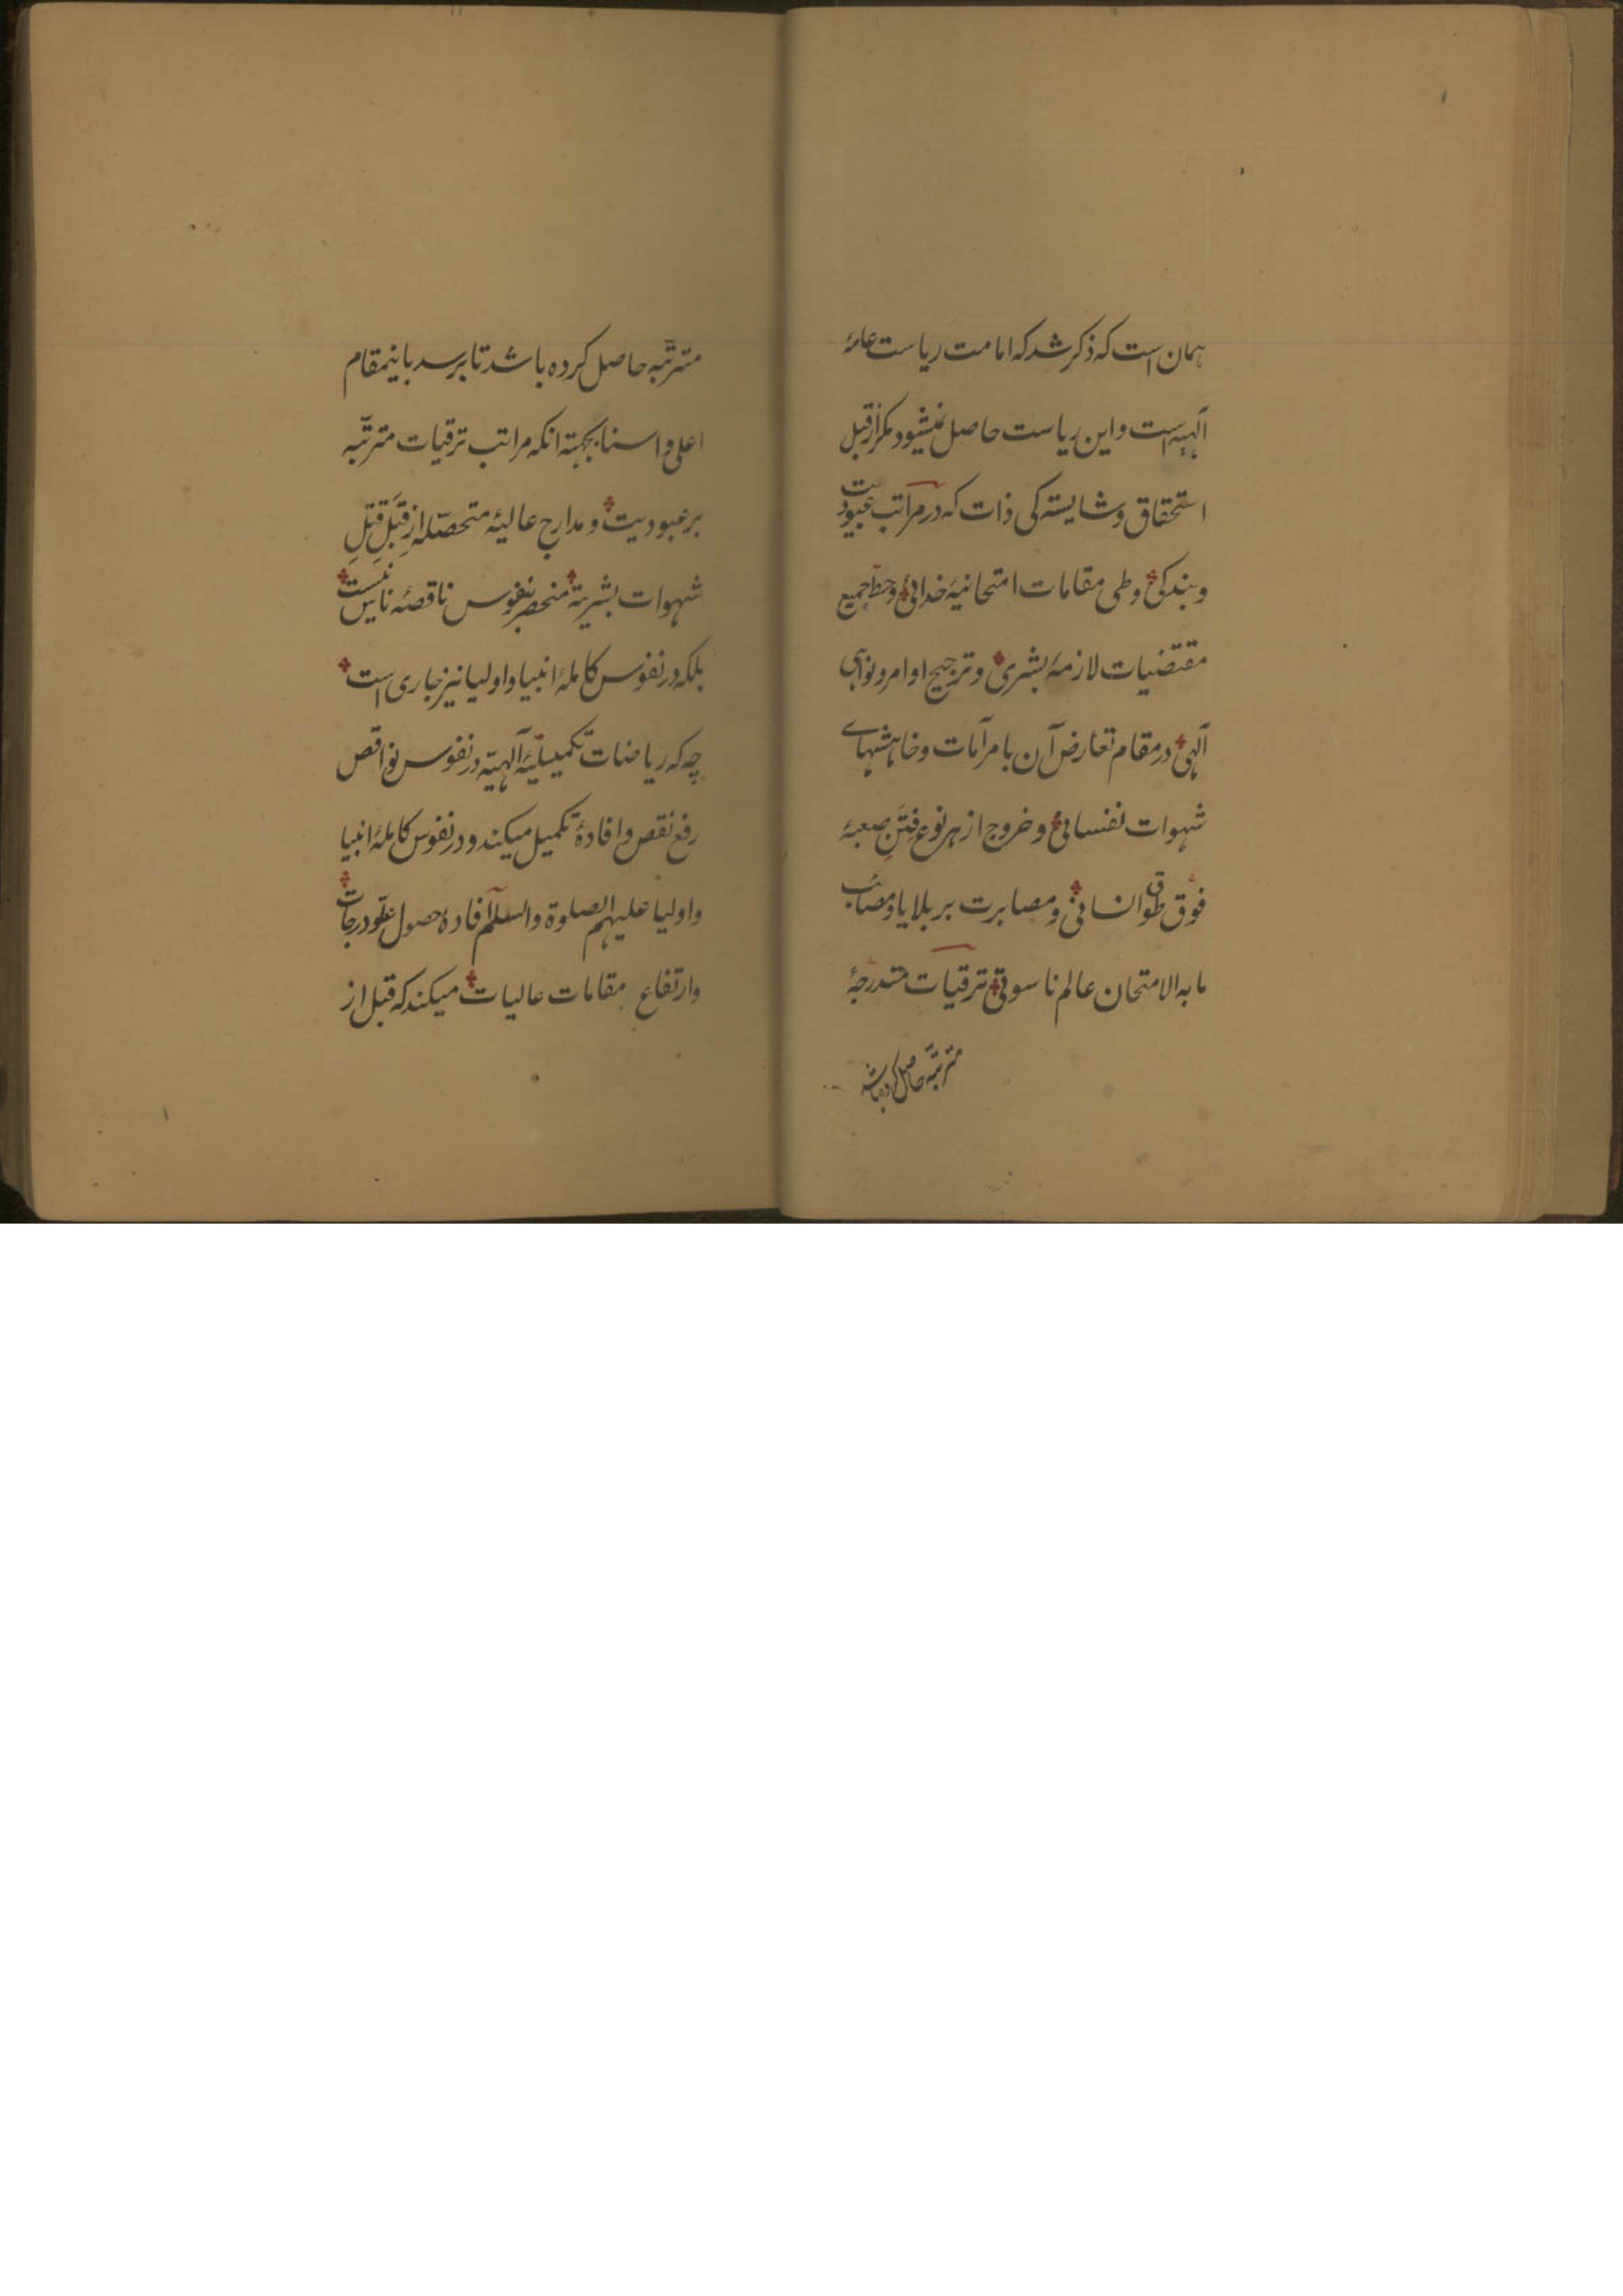 همان است که ذکر شد که امامت ریاست عامهٔ
آلهیه است و این ریاست حاصل نمیشود مکر از قبل
استحقاق و شایسته کی ذات که در مراتب عبودیت
و بندکی و طی مقامات امتحانیهٔ خدائی و جمیع
مقتضیات لازمهٔ بشری و ترجیح اوامر و نواهی
آلهی در مقام تعارض آن با مرآمات و خاهشهای
شهوات نفسانی و خروج از هر نوع فِتَنِ صعبهٔ
فوق طوق انسانی و مصابرت بر بلایا و مصائب
ما به الامتحان عالم ناسوتی ترقیات متدرجهٔ
مترتبّه حاصل کرده باشد
مترتّبه حاصل کرده باشد تا برسد باینمقام
اعلی و اسنا بجهتة انکه مراتب ترقیات مترتّبه
بر عبودیت و مدارج عالیهٔ متحصّله از قِبَلِ قتلِ
شهوات بشریة منحصر بنفوس ناقصهٔ ناس نیست
بلکه در نفوس کاملهٔ انبیا و اولیا نیز جاری است
چه که ریاضات تکمیلیّهٔ آلهیّه در نفوس نواقص
رفع نقص و افادهٔ تکمیل میکند و در نفوس کاملهٔ انبیا
و اولیا علیهم الصلوة والسلم افادهٔ حصول علّو درجات
و ارتفاع مقامات عالیات میکند که قبل از